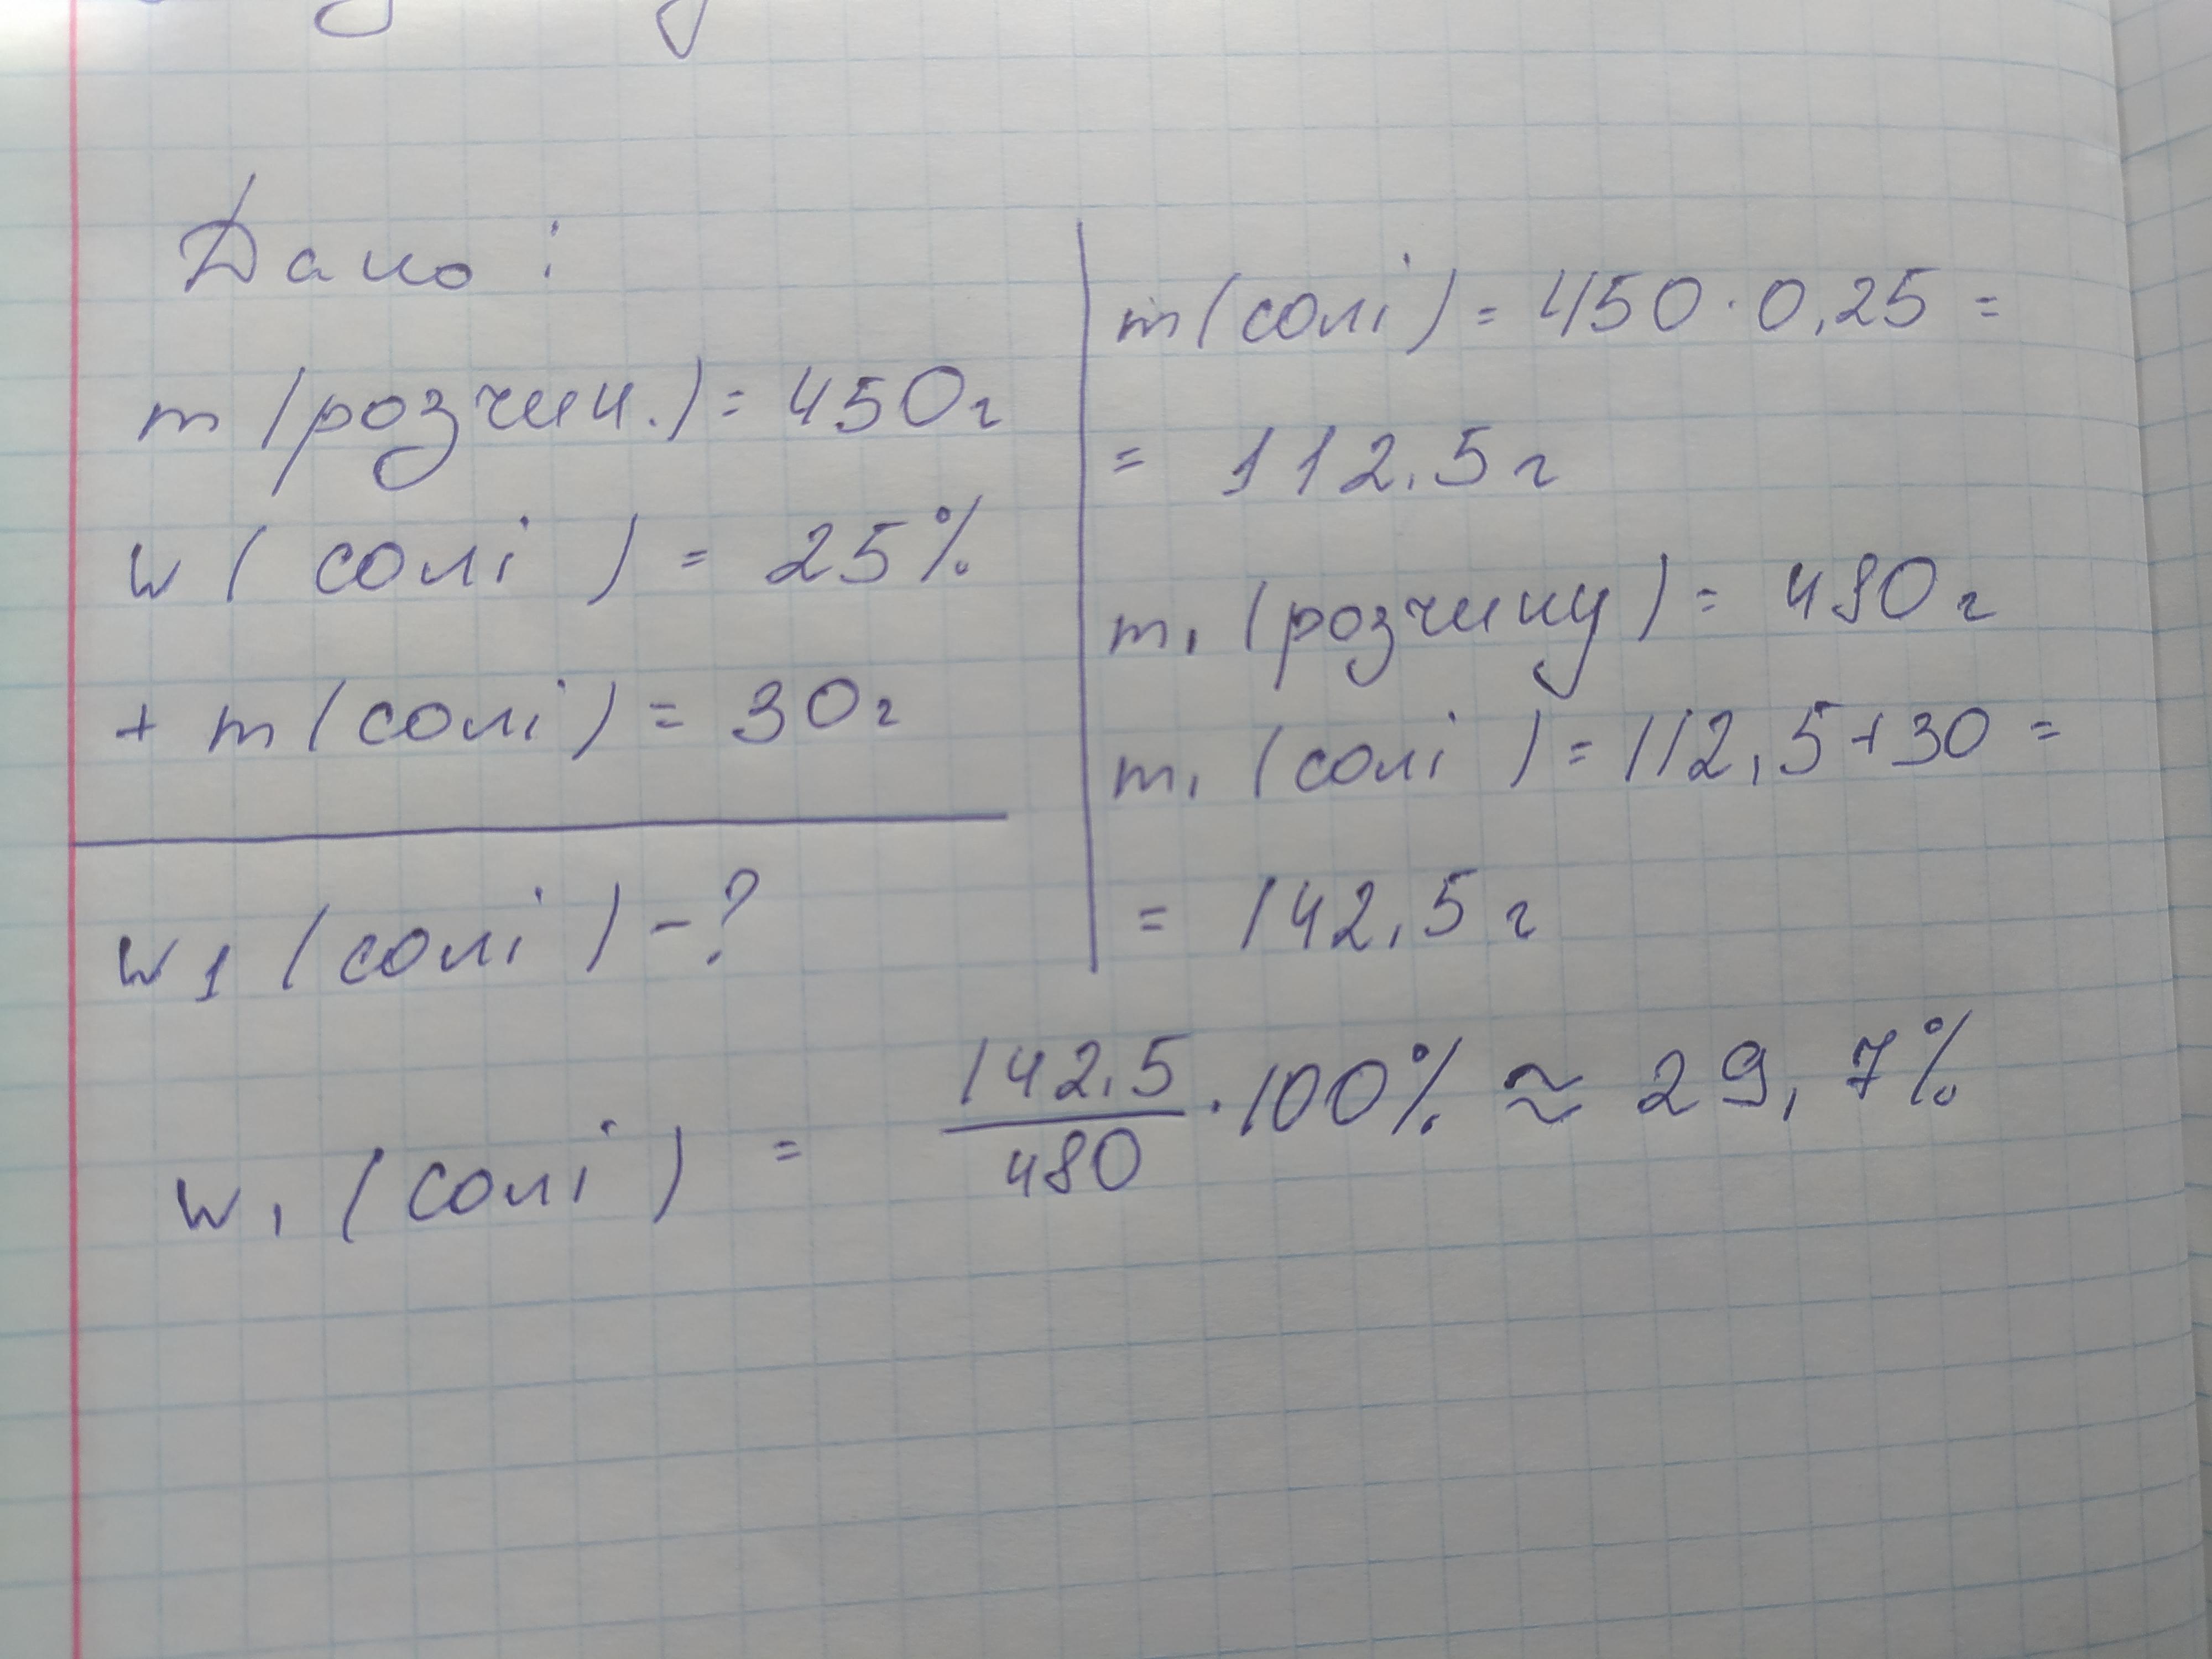 Дано:
m (розчин.) = 450г
w (солі) = 25%
+ m (солі) = 30г
w1 (солі) - ?
m (солі) = 450 · 0,25 =
= 112,5 г
m₁ (розчину) = 480 г
m₁ (солі) = 112,5 + 30 =
= 142,5 г
w₁ (солі) = 142,5/480 · 100% ≈ 29,7%